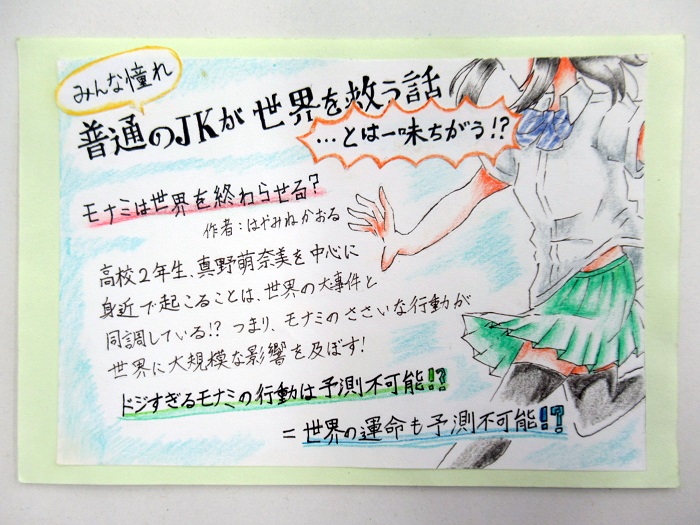 みんな憧れ
普通のJKが世界を救う話
…とは一味ちがう!?
モナミは世界を終わらせる?
作者:はやみねかおる
高校2年生、真野萌奈美を中心に
身近で起こることは、世界の大事件と
同調している!? つまり、モナミのささいな行動が
世界に大規模な影響を及ぼす!
ドジすぎるモナミの行動は予測不可能!?
=世界の運命も予測不可能!?